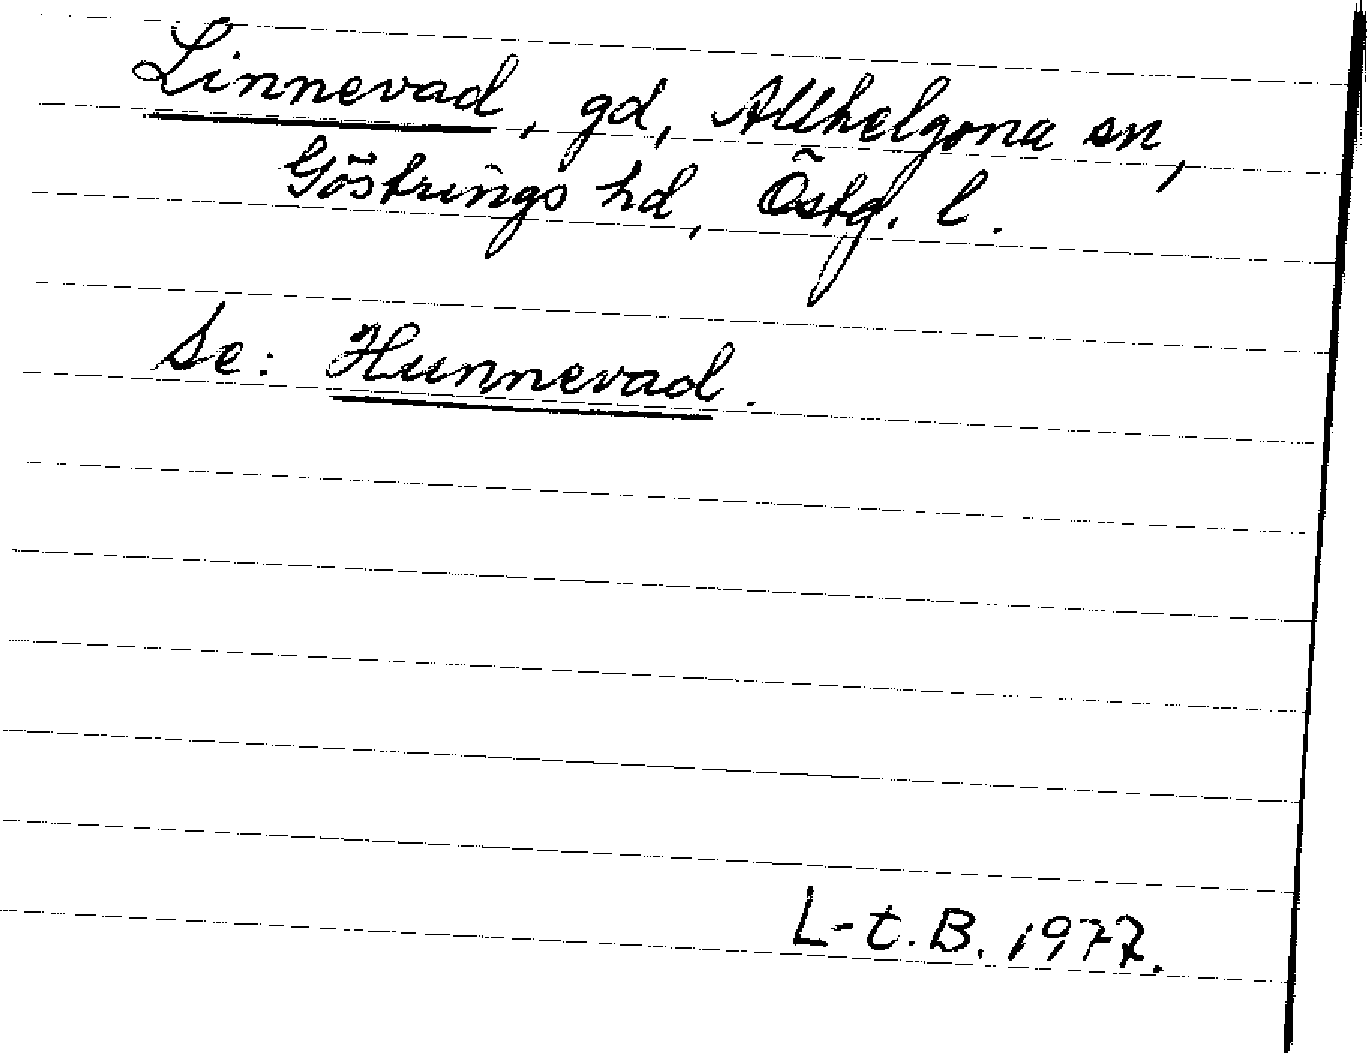 Linnevad, gd, Allhelgona sn,
Göstrings hd, Östg. l.
Se: Hunnevad.
L-t.B. 1977.